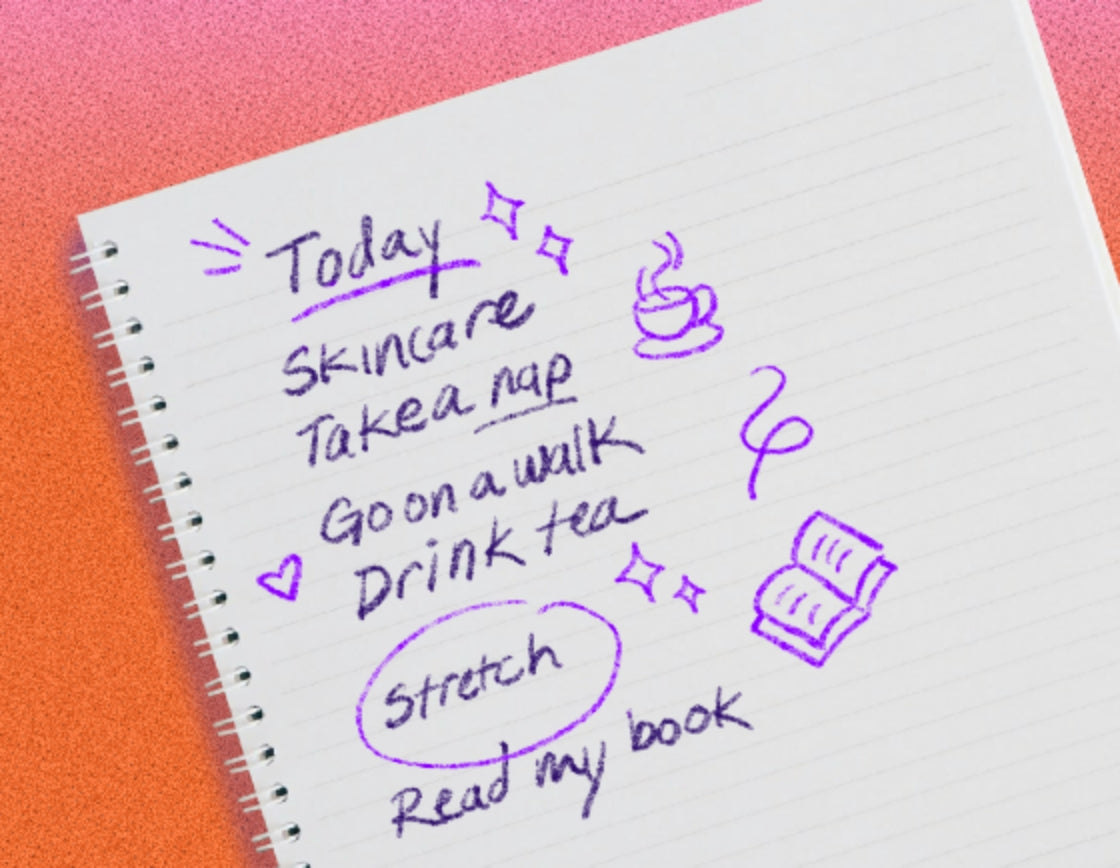 Today
Skincare
Take a nap
Go on a walk
Drink tea
Stretch
Read my book